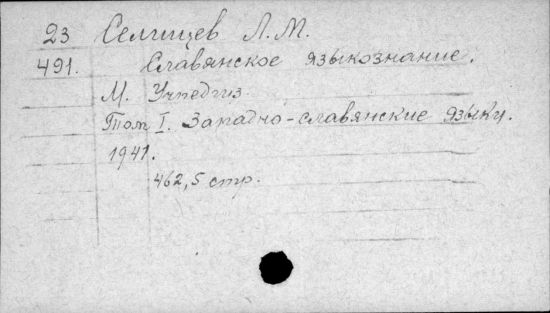 23 Селищев Л.М.
491. Славянское языкознание.
М. Учпедгиз
Том I. Западно-славянские языки.
1941.
462,5 стр.